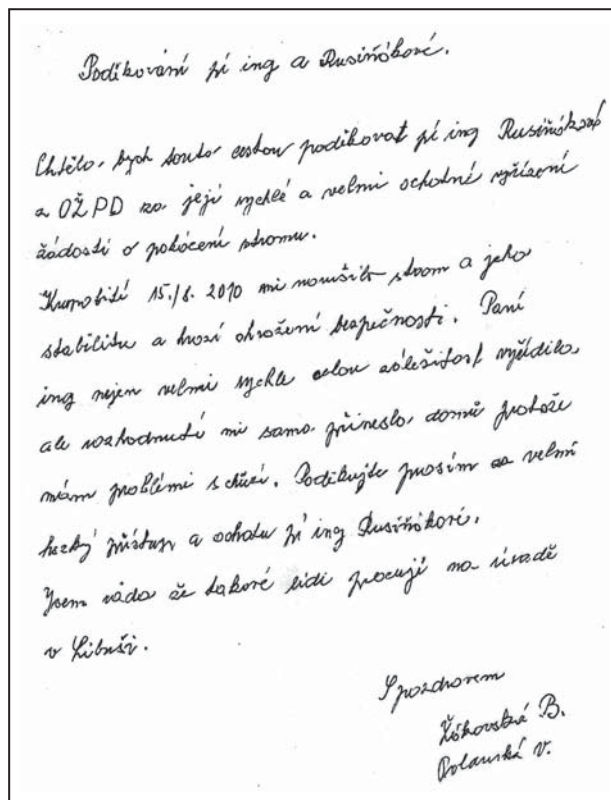 Poděkování pí ing a Rusiňákové.
Chtěla bych touto cestou poděkovat pí ing Rusiňákové
z OŽPD za její rychlé a velmi ochotné vyřízení
žádosti o pokácení stromu.
Krupobití 15./8. 2010 mi narušilo strom a jeho
stabilitu a hrozí ohrožení bezpečnosti. Paní
ing nejen velmi rychle celou záležitost vyřídila,
ale rozhodnutí mi sama přinesla domů protože
mám problémi s chůzí. Poděkujte prosím za velmi
hezký přístup a ochotu pí ing Rusiňákové.
Jsem ráda že takové lidi pracují na úřadě
v Libuši.
S pozdravem
Žákovská B.
Polanská V.